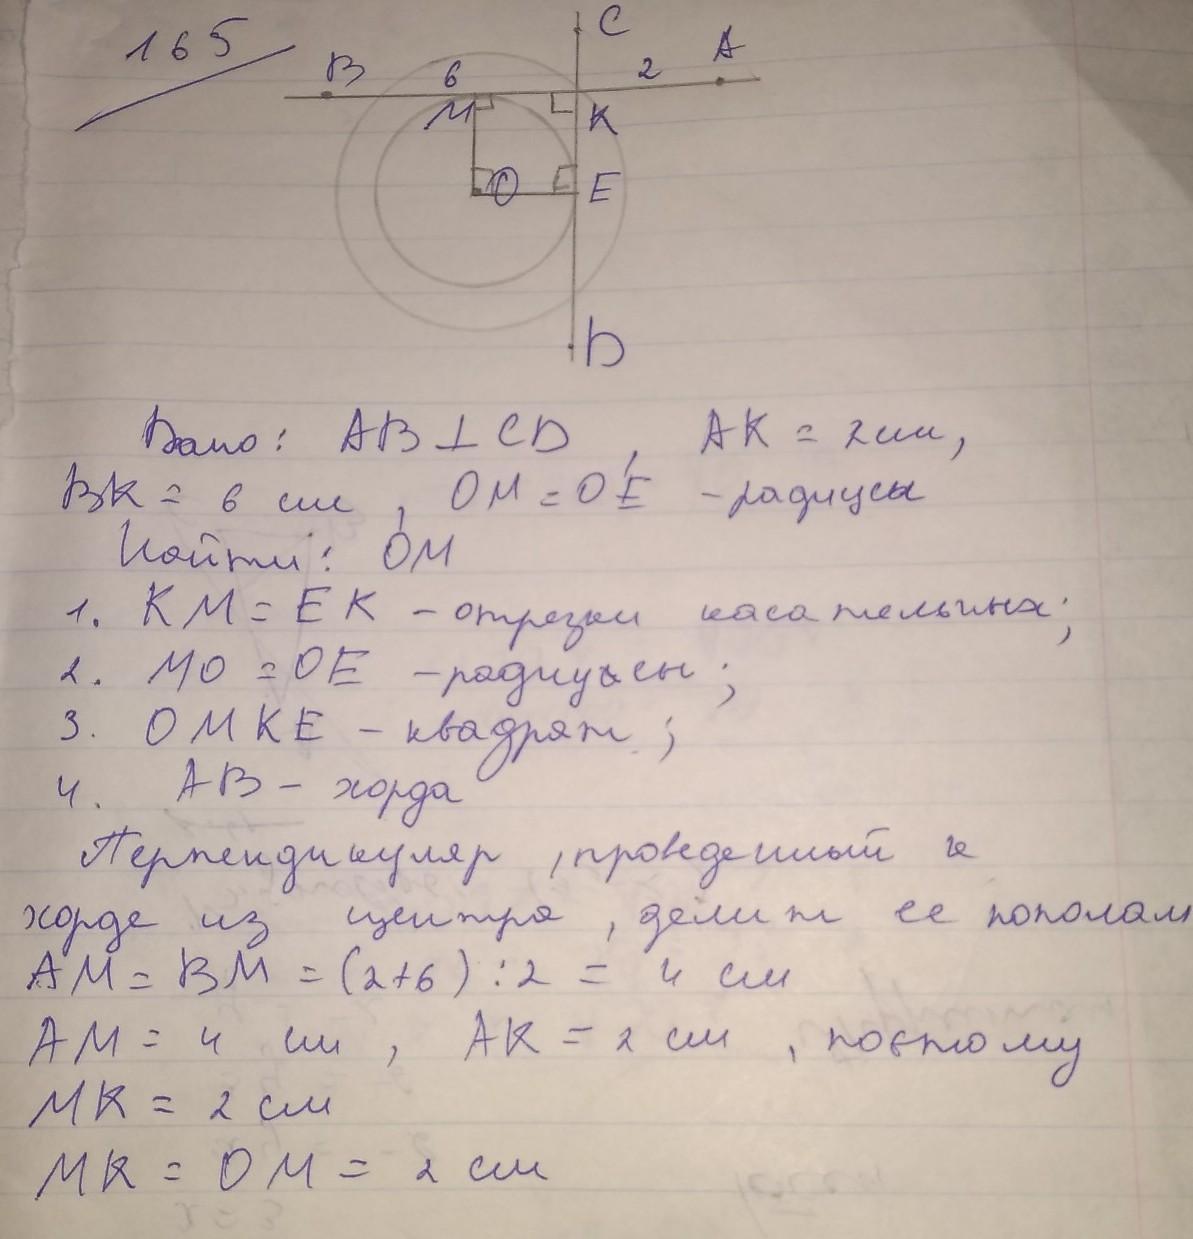 165
C
B 6 2 A
M K
O E
D
Дано: AB ⊥ CD, AK = 2 см,
BK = 6 см, OM = OE - радиусы
Найти: OM
1. KM = EK - отрезки касательных;
2. MO = OE - радиусы;
3. OMKE - квадрат;
4. AB - хорда
Перпендикуляр, проведенный к
хорде из центра, делит ее пополам
AM = BM = (2+6) : 2 = 4 см
AM = 4 см, AK = 2 см, поэтому
MK = 2 см
MK = OM = 2 см